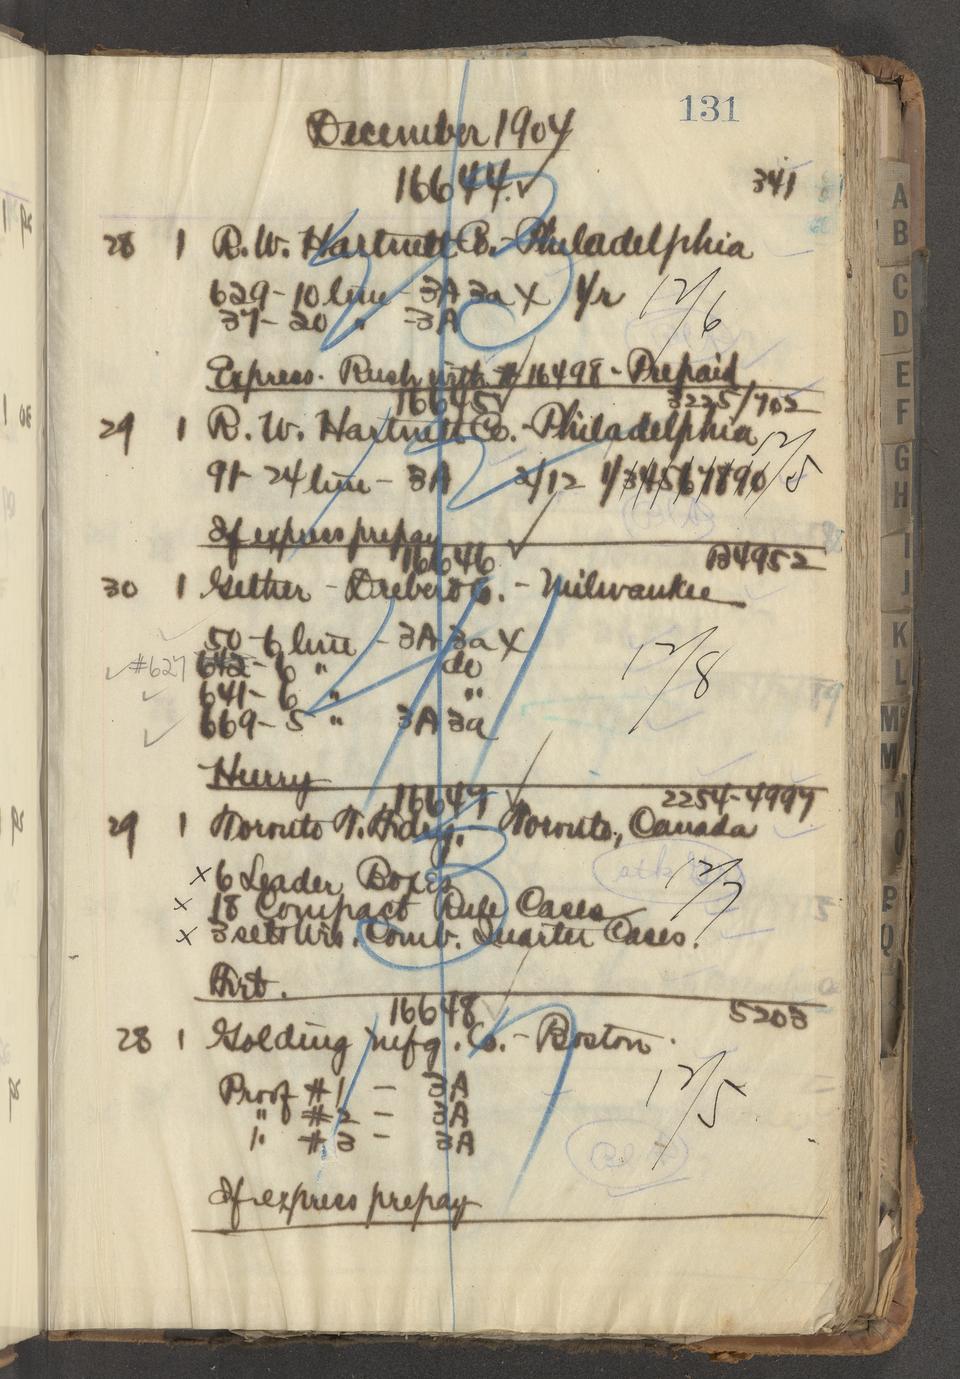 131
December 1904
16644 ✓
341
28 1 R. W. Hartnett Co. - Philadelphia
629 - 10 line - 3A 3a X 1/r 12/6
37 - 20 " - 3A
Express. Rush with # 16498 - Prepaid
16645 ✓ 3225/702
29 1 R. W. Hartnett Co. - Philadelphia 12/5
91 - 24 line - 3A 2/12 1/34567890
If express prepay
16646 ✓ B4952
30 1 Gether - Drebert Co. - Milwaukee
50 - 6 line - 3A 3a X 12/8
✓ #627 642 - 6 " do
641 - 6 " "
669 - 5 " 3A 3a
Hurry
16647 ✓ 2254 - 4997
29 1 Toronto T. Fdry. Toronto, Canada
x 6 Leader Boxes 12/7
x 18 Compact Rule Cases
x 3 sets Wis. Comb. Quarter Cases.
Frt.
16648 ✓ 5203
28 1 Golding Mfg. Co. - Boston.
Proof #1 - 3A 12/5
" #2 - 3A
" #3 - 3A
If express prepay
A
B
C
D
E
F
G
H
I
J
K
L
M
M
N
O
P
Q